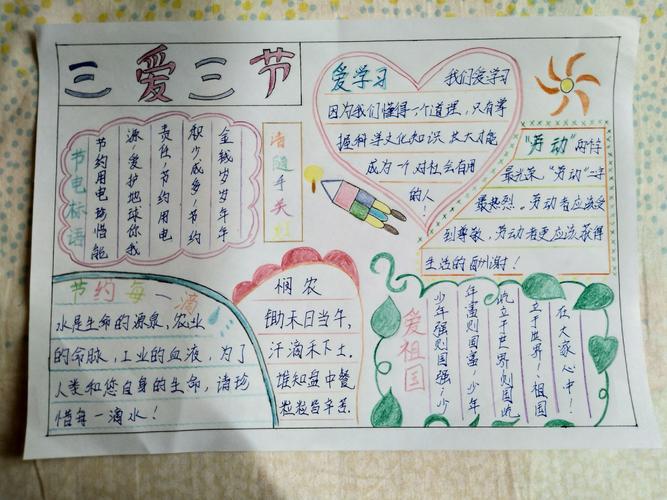 三爱三节
爱学习
我们爱学习
因为我们懂得一个道理,只有掌
握科学文化知识 长大才能
成为一个对社会有用
的人!
"劳动"两个字
最光荣 "劳动"二字
最热烈。劳动者应该受
到尊敬,劳动者更应该获得
生活的酬谢!
节电标语
金钱岁岁年年
积少成多!节约
责任!节约用电
源!爱护地球你我
节约用电 珍惜能
请随手关灯
节约每一滴
水是生命的源泉,农业
的命脉,工业的血液,为了
人类和您自身的生命,请珍
惜每一滴水!
悯农
锄禾日当午,
汗滴禾下土。
谁知盘中餐
粒粒皆辛苦。
爱祖国
在大家心中!
立于世界!祖国
屹立于世界则国屹
年富则国富 少年
少年强则国强!少